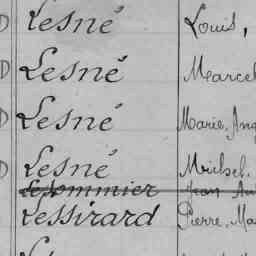 Lesné Louis,
D Lesné Marcel
Lesné Marie, Ang
D Lesné Michel.
Le Pommier Jean
Lessirard Pierre, Ma